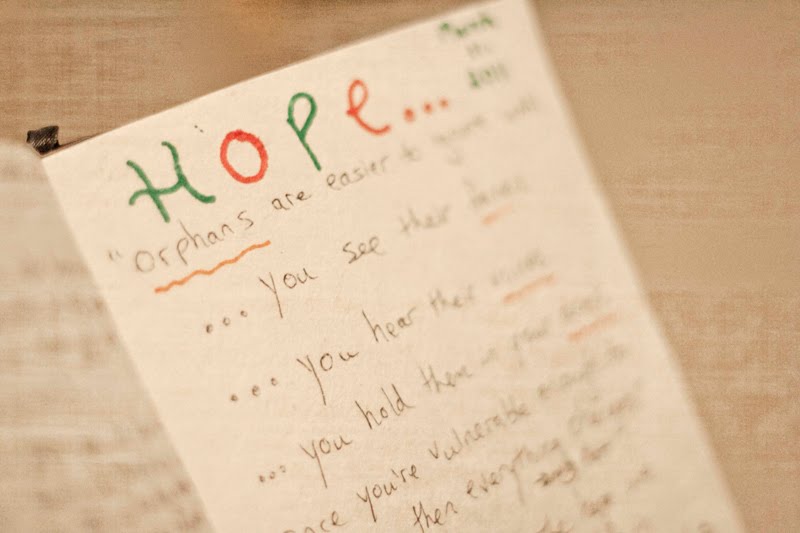 HOPE...
2011
"Orphans are easier to ignore until
... You see their faces
... you hear their voices
... you hold them in your arms
once you're vulnerable enough to
then everything changes